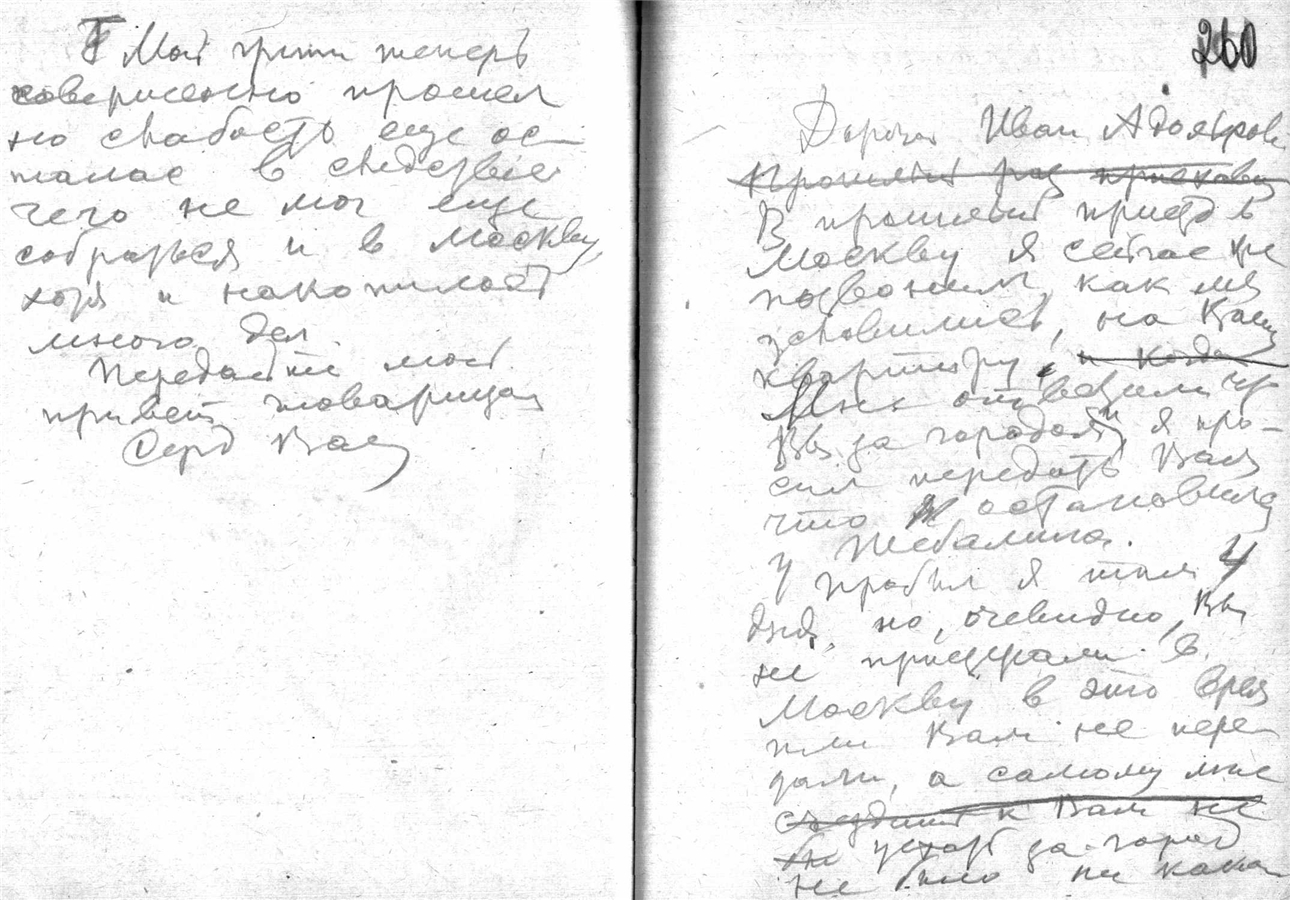 Мой грипп теперь
совершенно прошел
но слабость еще ос-
талас в следствие
чего не мог еще
собраться и в Москву,
хотя и накопилось
много дел.
Передайте мой
привет товарищам
Серд Ваш
260
Дорогой Иван
Прошлый раз
В прошлый приезд в
Москву я сейчас же
позвонил, как мы
условились, на Вашу
квартиру, и когда
Мне ответили что
Вы за городом, и я про-
сил передать Вам
что остановился
у Шебалина.
Пробыл я там 4
дня, но, очевидно, Вы
не приезжали в
Москву в это время
или Вам не пере-
дали, а самому мне
к Вам не
за город
не было ни какой